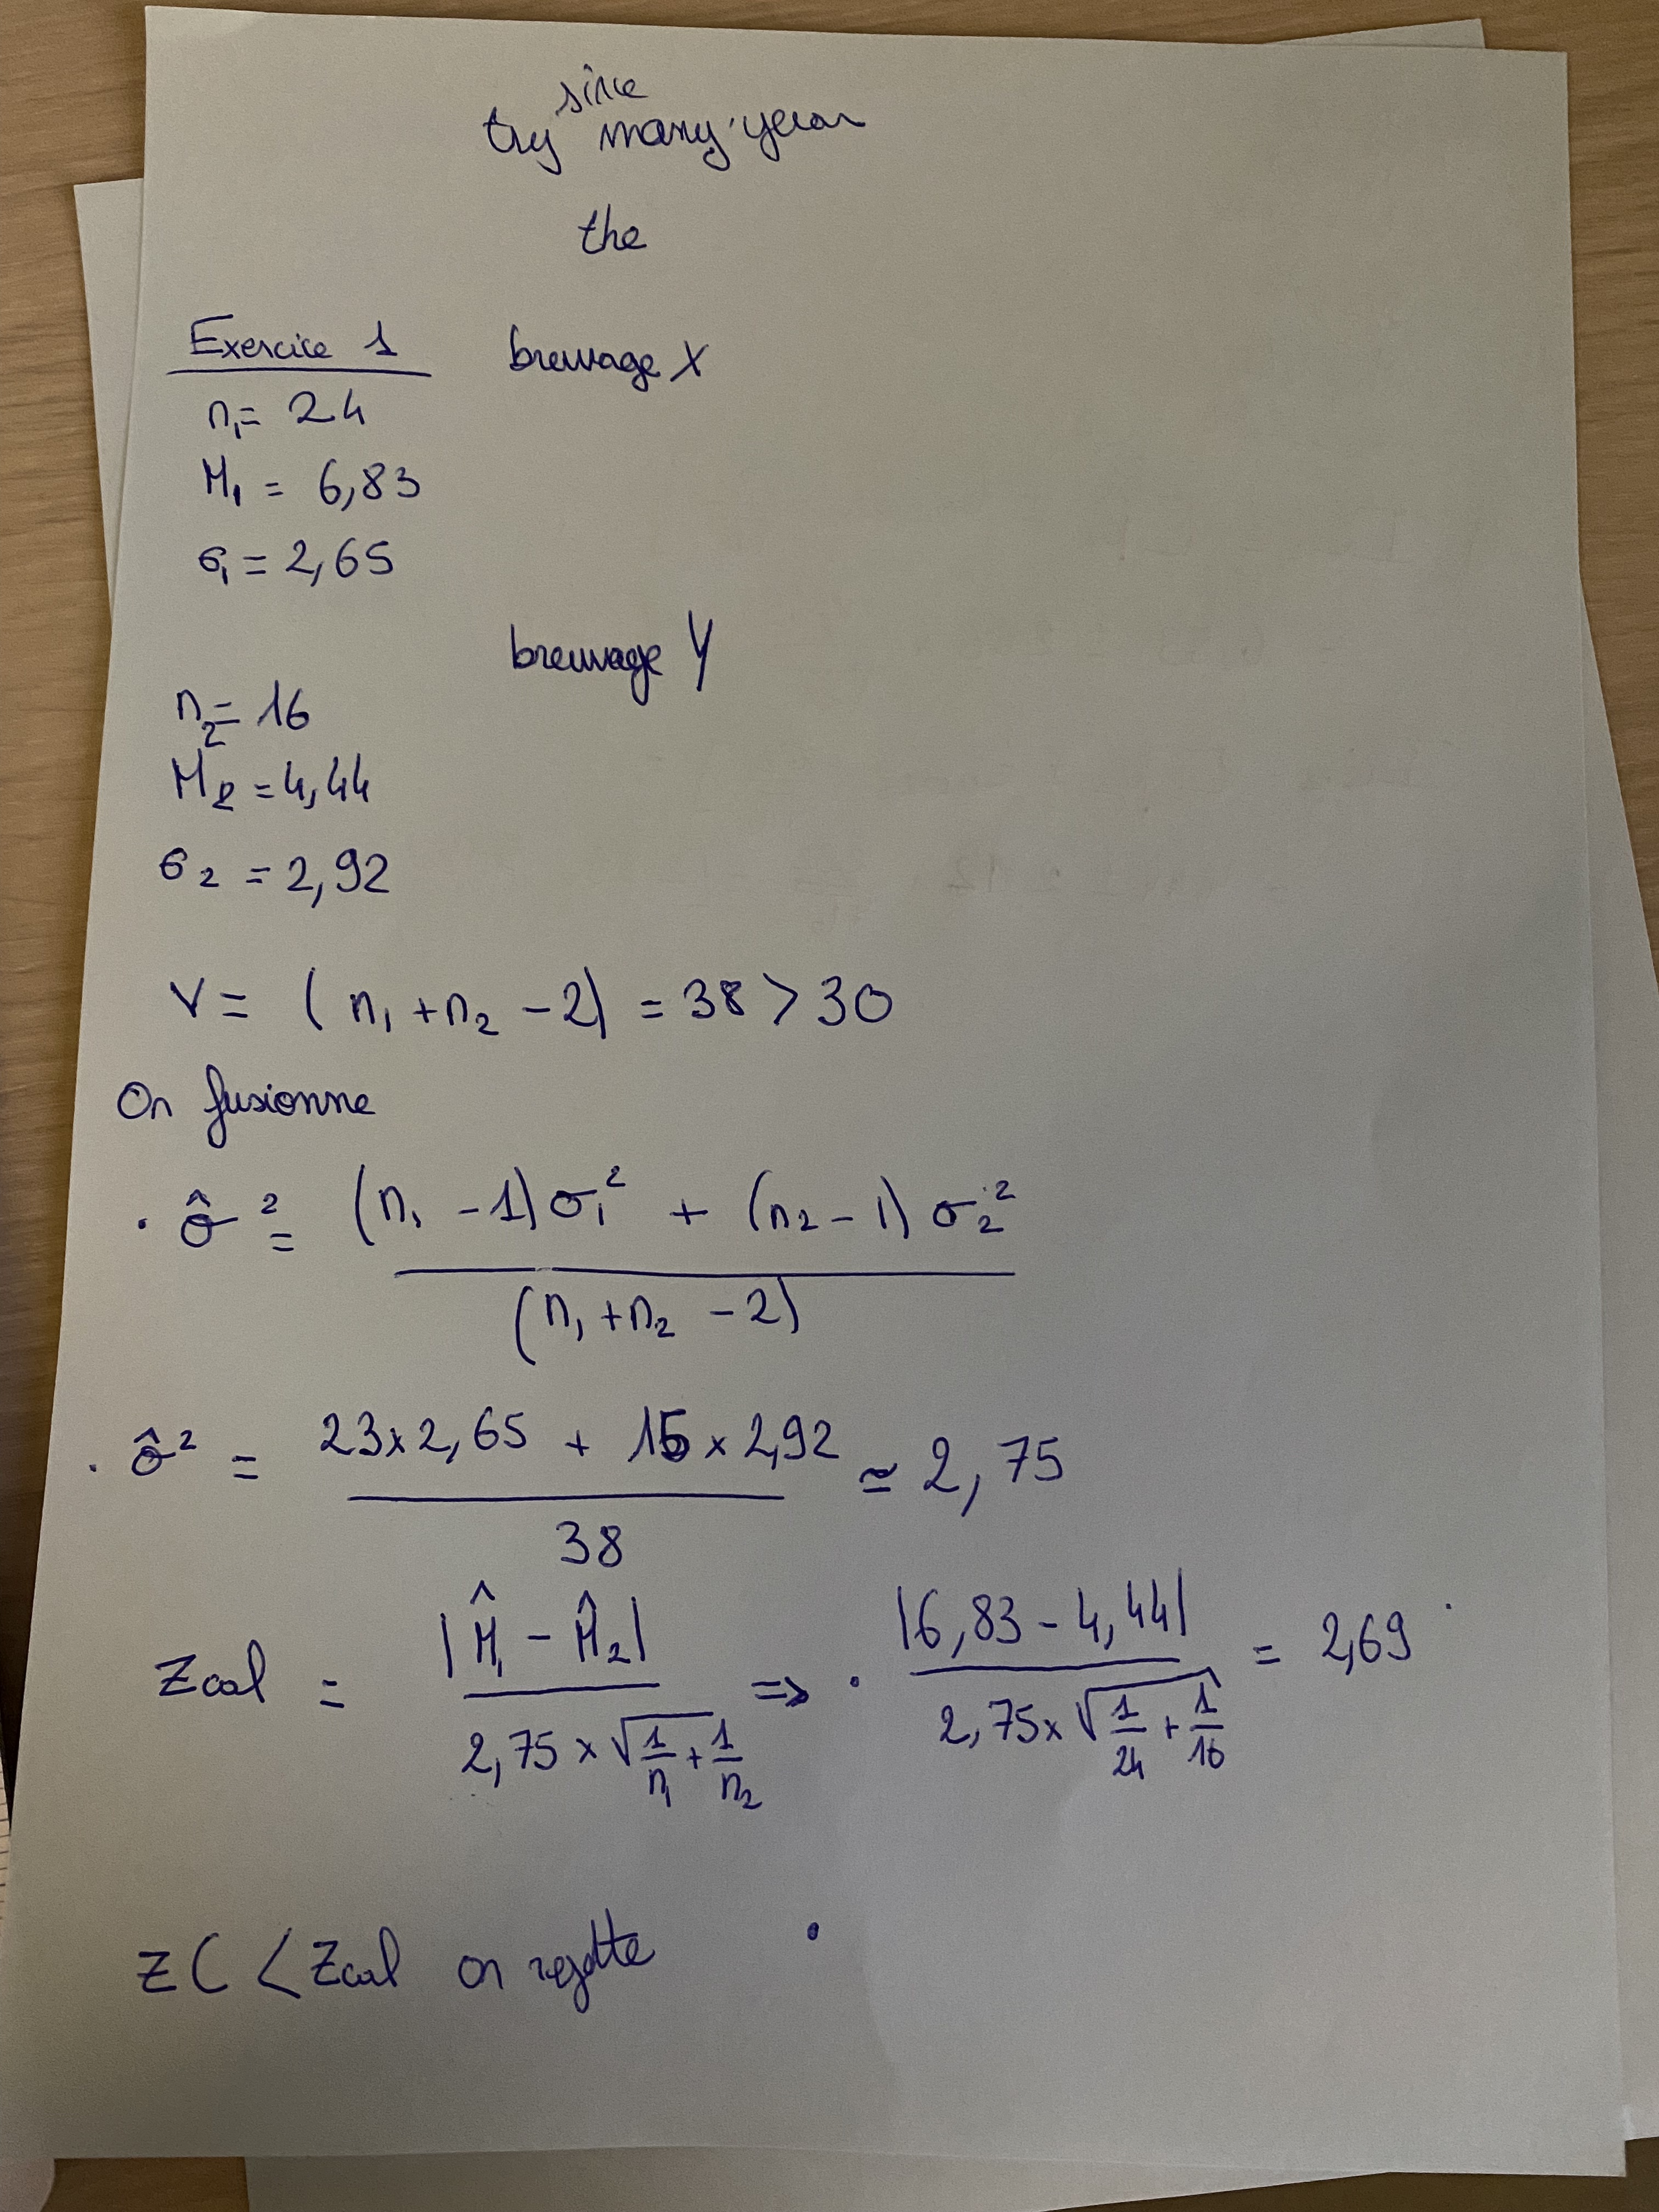 since
try many year
the
Exercice 1 breuvage X
n₁= 24
M₁ = 6,83
σ₁ = 2,65
breuvage Y
n₂= 16
M₂ = 4,44
σ₂ = 2,92
V = (n₁ + n₂ - 2) = 38 > 30
On fusionne
. σ̂² = (n₁ - 1) σ₁² + (n₂ - 1) σ₂²
(n₁ + n₂ - 2)
. σ̂² = 23 x 2,65 + 15 x 2,92 ≃ 2,75
38
Zcal = |M̂₁ - M̂₂| => . |6,83 - 4,44| = 2,69
2,75 x √1/n₁ + 1/n₂ 2,75 x √1/24 + 1/16
ZC < Zcal on rejette